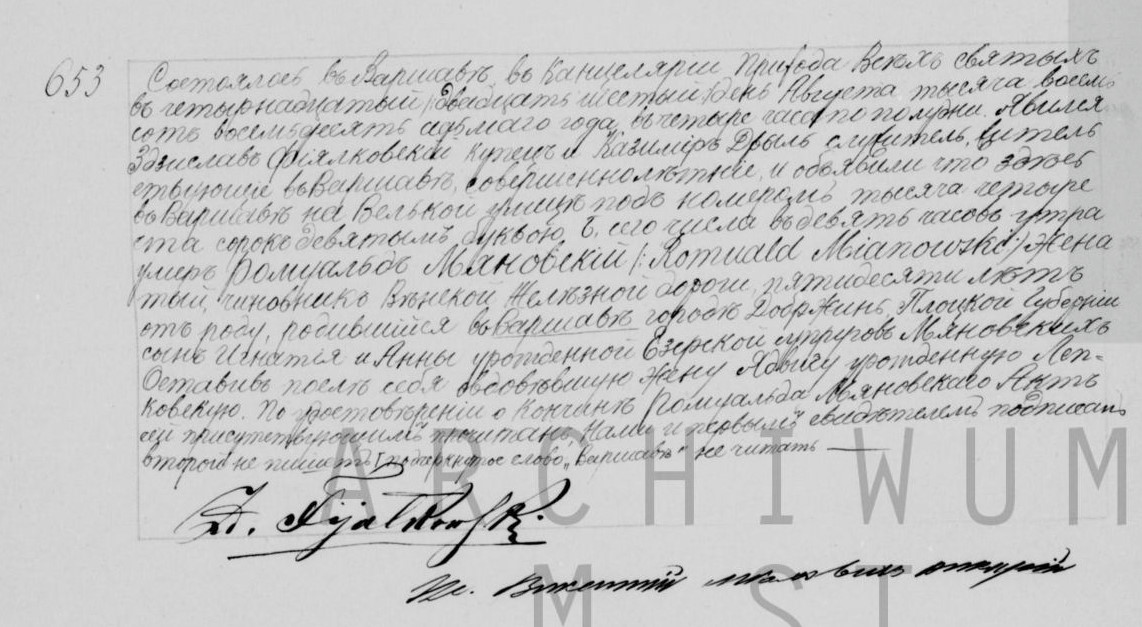 653
Состоялось въ Варшавѣ, въ Канцеляріи Прихода Всѣхъ Святыхъ
въ четырнадцатый /двадцать шестый/ день Августа тысяча восемь
сотъ восемьдесятъ седьмаго года, въ четыре часа по полудни. Явился
Здзиславъ Фіялковскій купецъ и Казимиръ Дрыль служитель, житель
ствующіе въ Варшавѣ, совершеннолѣтніе, и объявили что здѣсь
въ Варшавѣ на Велькой улицѣ подъ номеромъ тысяча четыре
ста сорокъ девятымъ буквою Б, сего числа въ девять часовъ утра
умеръ Ромуальдъ Мяновскій /: Romuald Mianowski :/ жена
тый, чиновникъ Вѣнской Желѣзной дороги, пятидесяти лѣтъ
отъ роду, родившійся въ Варшавѣ городѣ Добржинь, Плоцкой Губерніи
сынъ Игнатія и Анны урожденной Езерской супруговъ Мяновскихъ
Оставивъ послѣ себя овдовѣвшую жену Ядвигу урожденную Леп-
ковскую. По удостовѣреніи о кончинѣ Ромуальда Мяновскаго Актъ
сей присутствующимъ прочитанъ, Нами и первымъ свидѣтелемъ подписанъ
второй не пишетъ [подчеркнутое слово „Варшавѣ" не читать
Z. Fijałkowski.
Викентій
ARCHIWUM
M ST